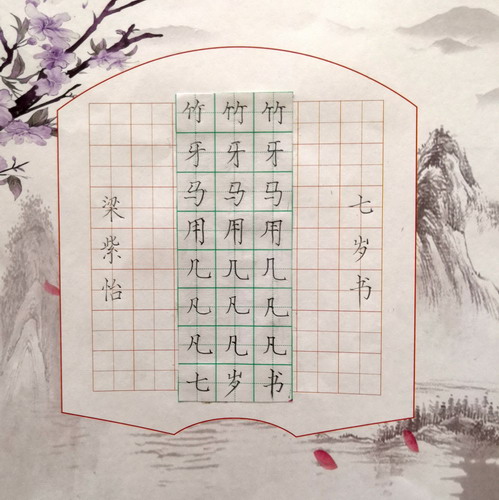 梁紫怡
竹竹竹
牙牙牙
马马马
用用用
几几几
凡凡凡
凡凡凡
七岁书
七岁书